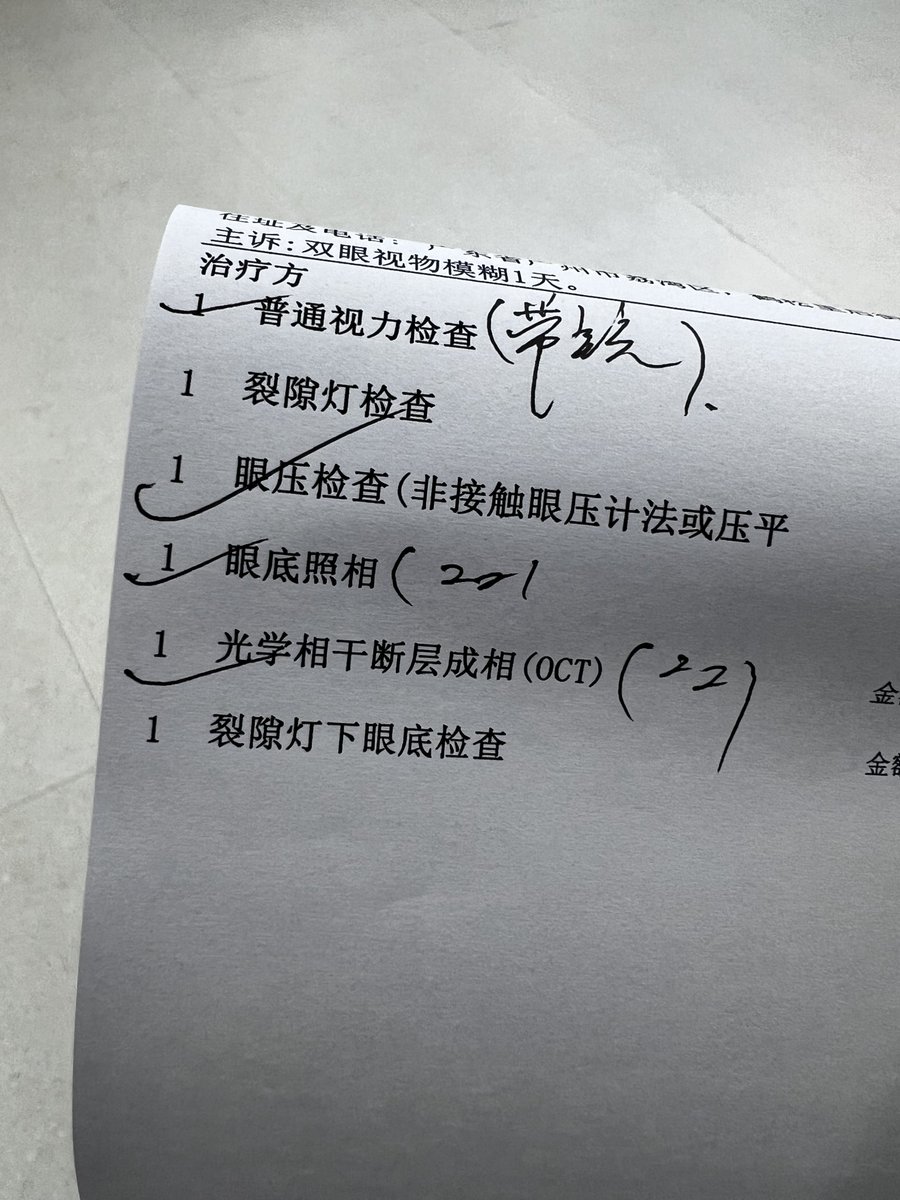 住址及电话：广东省广州市荔湾区，
主诉：双眼视物模糊1天。
治疗方
1 普通视力检查(带镜).
1 裂隙灯检查
1 眼压检查(非接触眼压计法或压平
1 眼底照相(201
1 光学相干断层成相(OCT) (22)
金
1 裂隙灯下眼底检查
金额